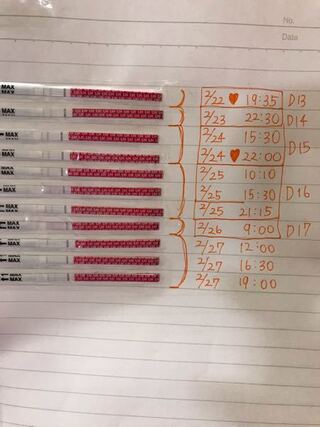 No.
Date
MAX
2/22 ♥ 19:35 D13
MAX
2/23 22:30 D14
MAX
2/24 15:30 D15
MAX
2/24 ♥ 22:00
MAX
2/25 10:10
MAX
2/25 15:30 D16
MAX
2/25 21:15
MAX
2/26 9:00 D17
MAX
2/27 12:00
MAX
2/27 16:30
MAX
2/27 19:00